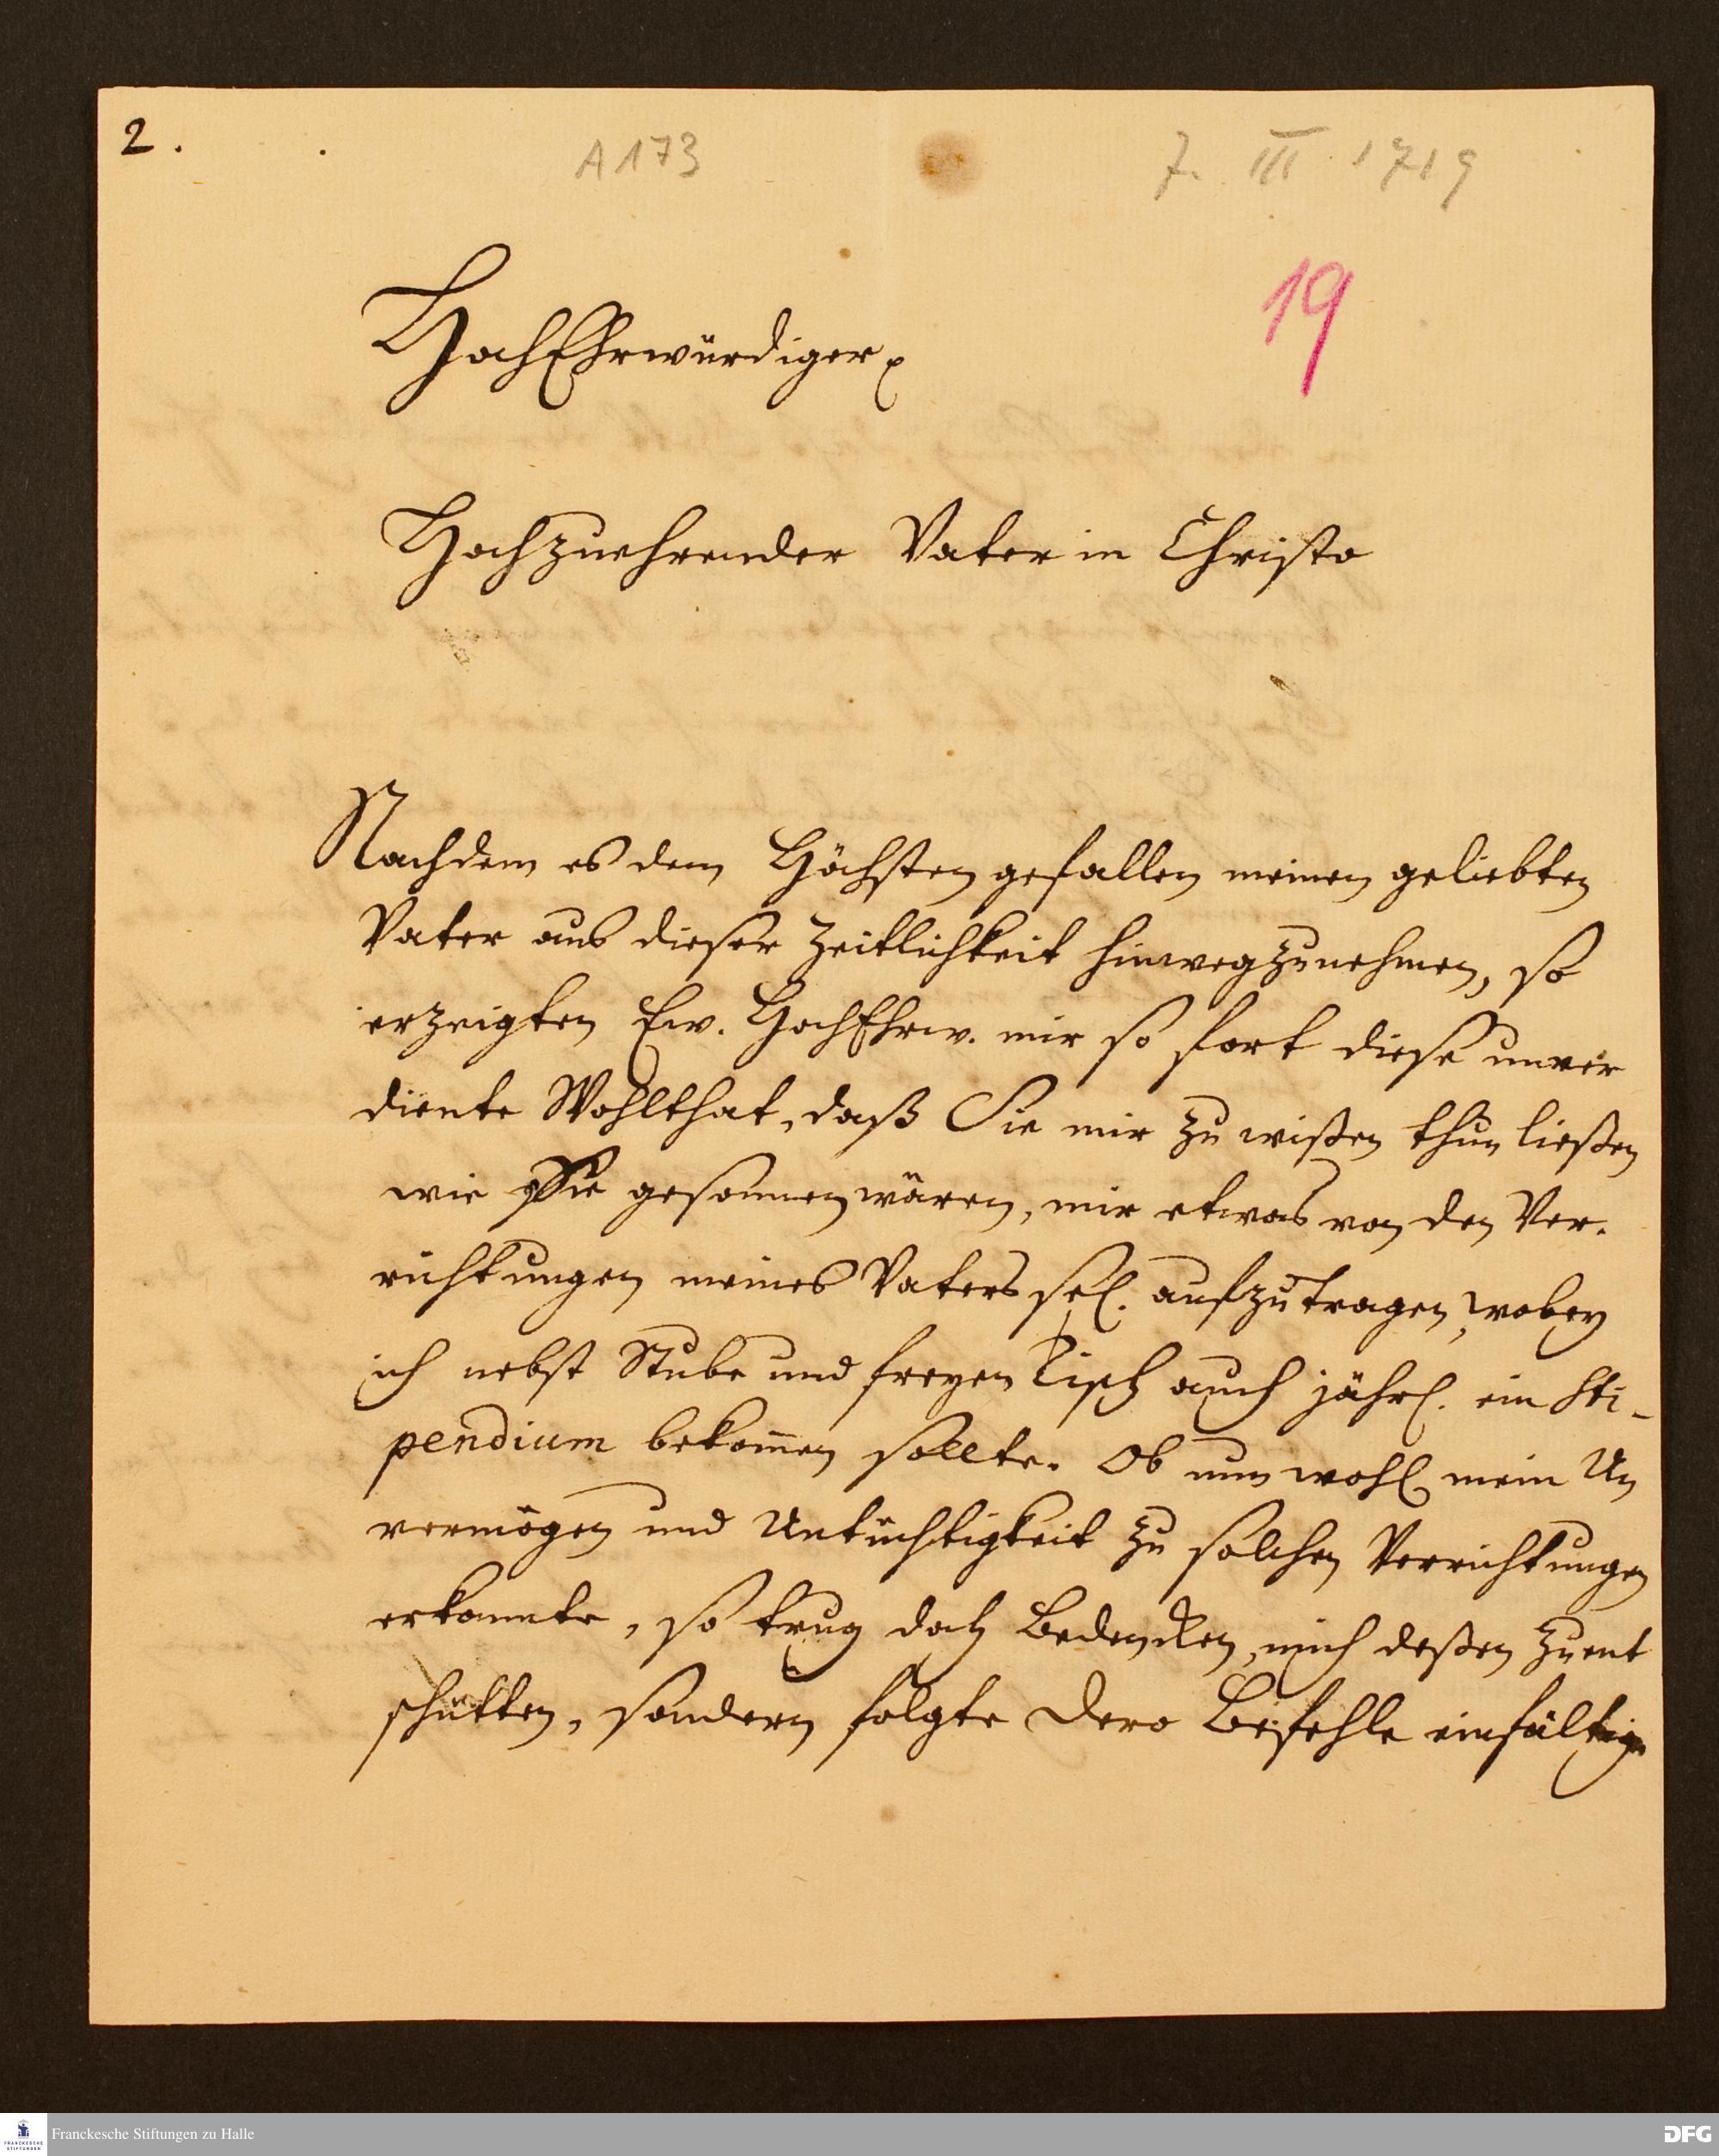 2.
A 173
7. III 1719
19
HochEhrwürdiger
Hochzuehrender Vater in Christo
Nachdem es dem Höchsten gefallen meinen geliebten
Vater aus dieser Zeitlichkeit hinwegzunehmen, so
erzeigten Ew. HochEhrw. mir so fort diese unver
diente Wohlthat, daß Sie mir zu wißen thun ließen
wie Sie gesonnen wären, mir etwas von den Ver-
richtungen meines Vaters sel. aufzutragen, wobey
ich nebst Stube und freyen Tisch auch jährl. ein Sti-
pendium bekom̅en sollte. Ob nun wohl mein Un
vermögen und Untüchtigkeit zu solchen Verrichtungen
erkannte, so trug doch Bedencken, mich deßen zu ent
schütten, sondern folgte Dero Befehle einfältig
Franckesche Stiftungen zu Halle
FRANCKESCHE STIFTUNGEN
DFG